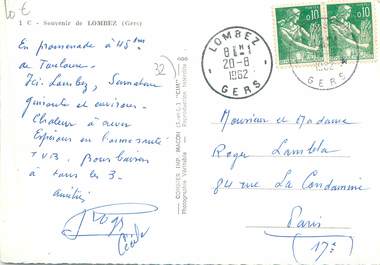 10€
1 C - Souvenir de LOMBEZ (Gers)
En promenade à 45 km
de Toulouse.
Ici Lombez, Samatan
et environs.
Chaleur à crever
Espérons en bonne santé
TVB. Bons baisers
à tous les 3.
Amitiés
Roger
Cécile
32
COMBIER IMP. MACON (S.-et-L.) "CIM"
Photographie Véritable - Reproduction interdite
LOMBEZ
8H 1
20-8
1962
GERS
0,10
0,10
GERS
Monsieur et Madame
Roger Lambla
84 rue La Condamine
Paris
(17e)